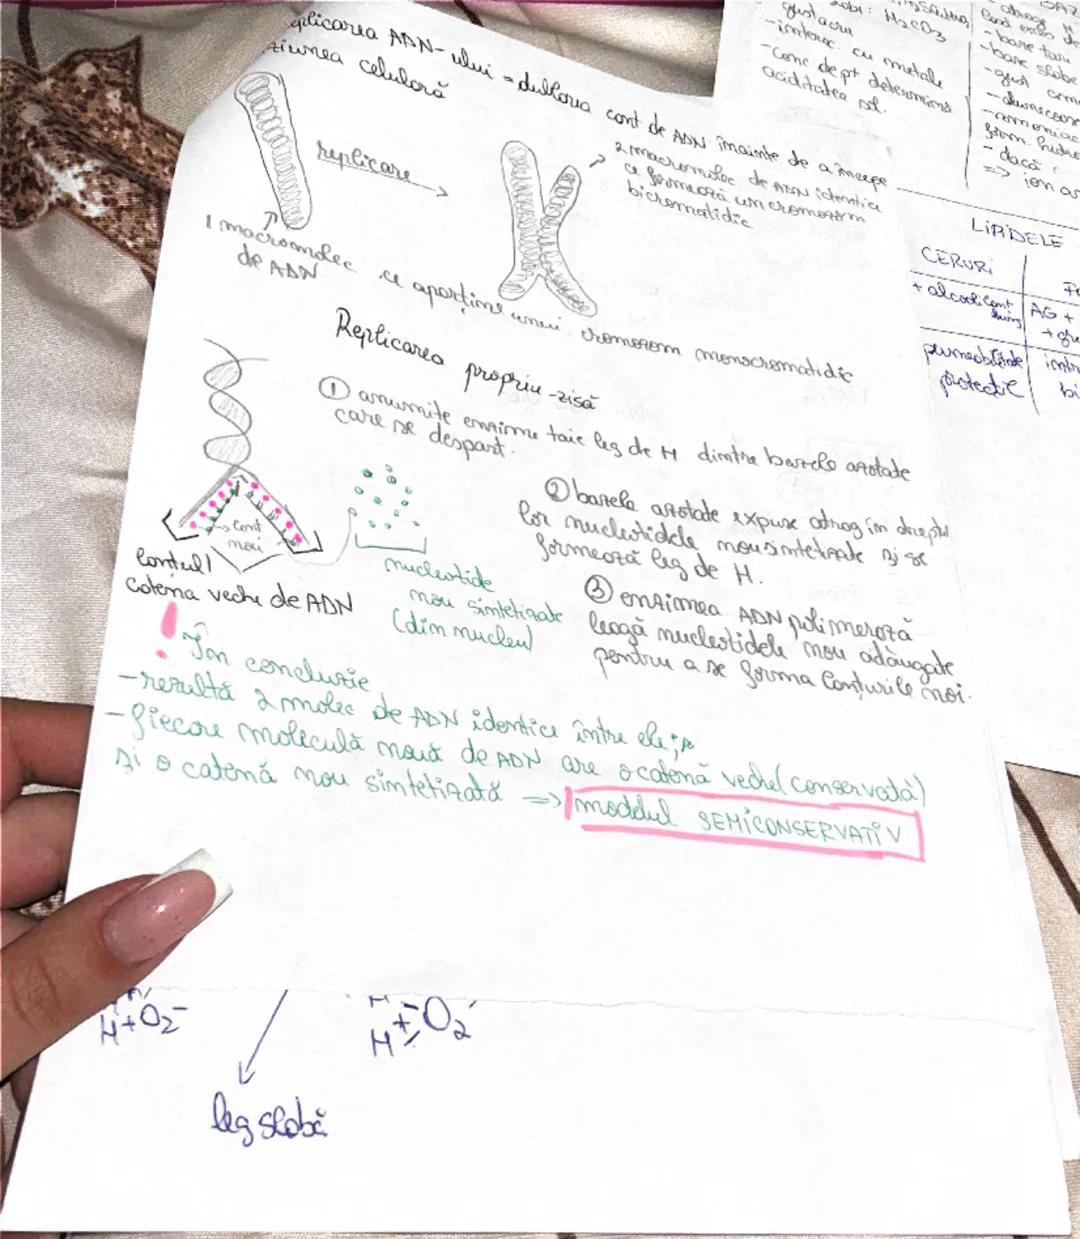 replicarea ADN-ului = dublarea cant de ADN înainte de a începe
diviziunea celulară
replicare
2 macromolec de ADN identice
ce formează un cromozom
bicromatidic
1 macromolec ce aparține unui cromozom monocromatidic
de ADN
Replicarea propriu-zisă
① anumite enzime taie leg de H dintre bazele azotate
care se despart.
② bazele azotate expuse atrag în dreptul
lor nucleotidele nou sintetizate și se
formează leg de H.
③ enzimea ADN polimerază
leagă nucleotidele nou adăugate
pentru a se forma lanțurile noi.
lant
noi
lanțul
catena veche de ADN
nucleotide
nou sintetizate
(din nucleu)
! În concluzie
- rezultă 2 molec de ADN identice între ele;
- fiecare moleculă nouă de ADN are o catenă veche (conservată)
și o catenă nou sintetizată => modelul SEMICONSERVATIV
H+O2-
H
H
O2
leg slabă
H2CO3
gust acru
- interac. cu metale
- conc de pt determina
aciditatea sol.
- baze tari
- baze slabe
- gust
- dacă
=> ion
LIPIDELE
CERURI
+ alcooli cant
lung
AG +
permeabilitate
protecție